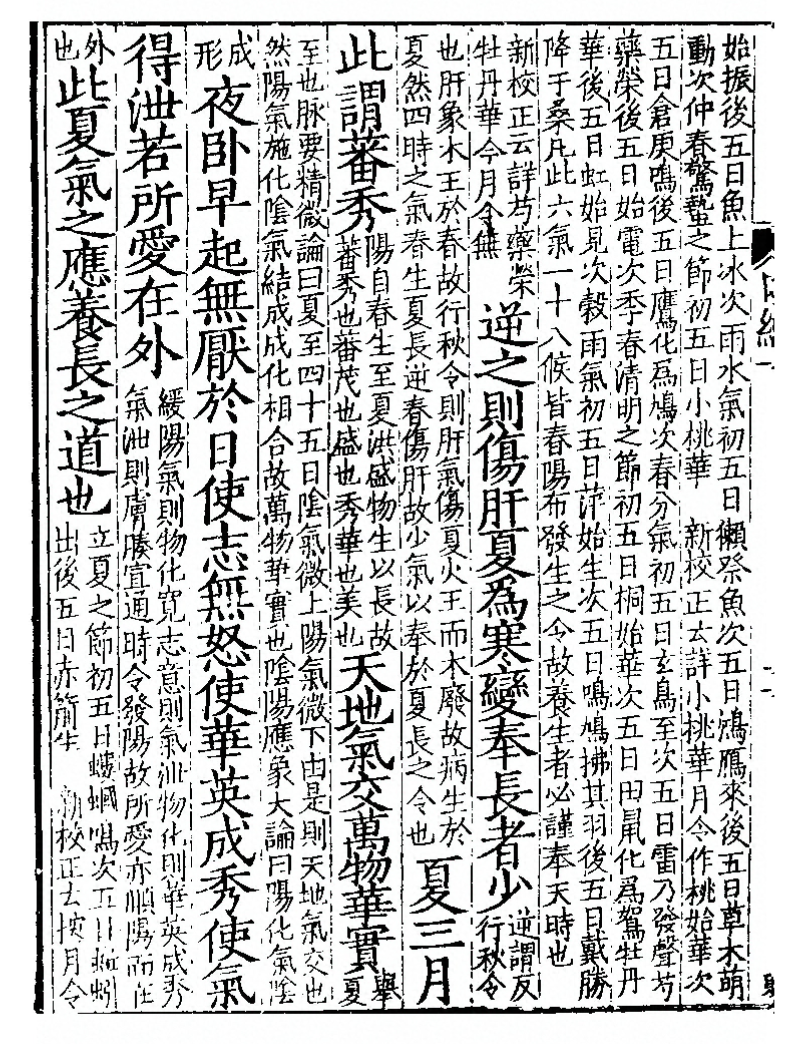 始振後五日魚上冰次雨水氣初五日獺祭魚次五日鴻鴈來後五日草木萌
動次仲春驚蟄之節初五日小桃華　新校正云詳小桃華月令作桃始華次
五日倉庚鳴後五日鷹化爲鳩次春分氣初五日玄鳥至次五日雷乃發聲芍
藥榮後五日始電次季春清明之節初五日桐始華次五日田鼠化爲鴽牡丹
華後五日虹始見次穀雨氣初五日萍始生次五日鳴鳩拂其羽後五日戴勝
降于桑凡此六氣一十八候皆春陽布發生之令故養生者必謹奉天時也
新校正云詳芍藥榮牡丹華今月令無　逆之則傷肝夏爲寒變奉長者少逆謂反行秋令
也肝象木王於春故行秋令則肝氣傷夏火王而木廢故病生於夏然四時之氣春生夏長逆春傷肝故少氣以奉於夏長之令也　夏三月
此謂蕃秀陽自春生至夏洪盛物生以長故蕃秀也蕃茂也盛也秀華也美也天地氣交萬物華實舉夏
至也脉要精微論曰夏至四十五日陰氣微上陽氣微下由是則天地氣交也
然陽氣施化陰氣結成成化相合故萬物華實也陰陽應象大論曰陽化氣陰
成形夜卧早起無厭於日使志無怒使華英成秀使氣
得泄若所愛在外緩陽氣則物化寬志意則氣泄物化則華英成秀氣泄則膚腠宣通時令發陽故所愛亦順陽而在
外也此夏氣之應養長之道也立夏之節初五日螻蟈鳴次五日蚯蚓出後五日赤箭生　新校正云按月令